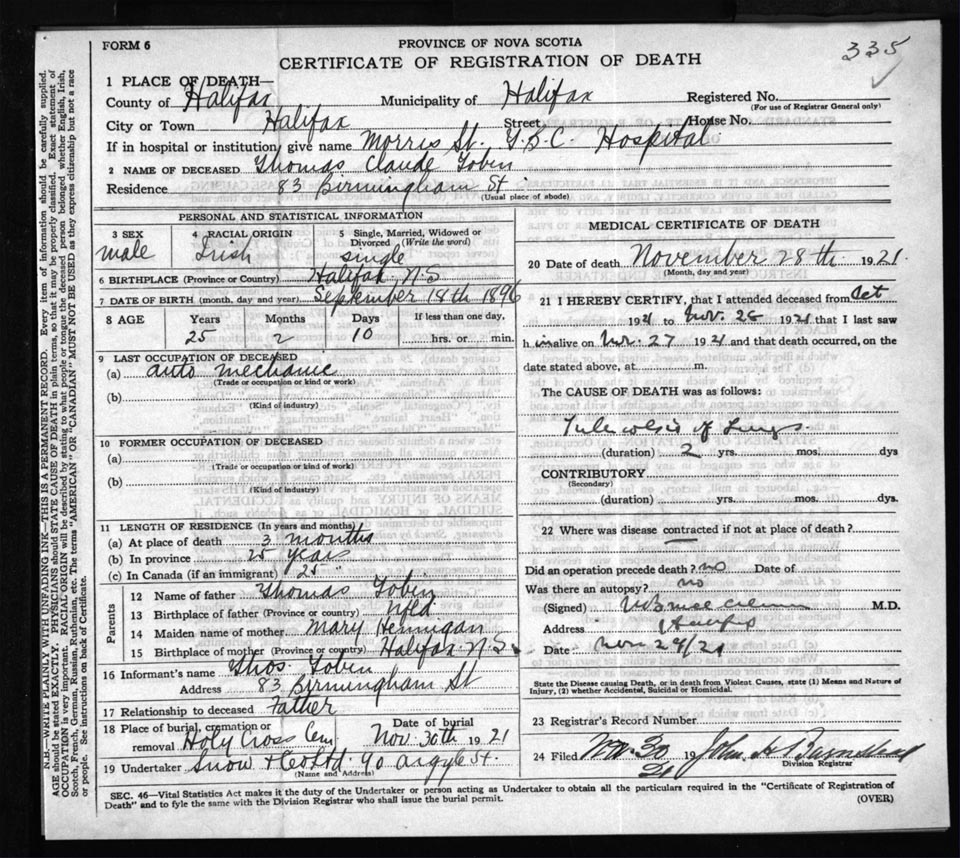 FORM 6
PROVINCE OF NOVA SCOTIA
335
CERTIFICATE OF REGISTRATION OF DEATH
1 PLACE OF DEATH—
County of Halifax Municipality of Halifax Registered No.
(For use of Registrar General only)
City or Town Halifax Street House No.
If in hospital or institution, give name Morris St. T.B.C. Hospital
2 NAME OF DECEASED Thomas Claude Tobin
Residence 83 Birmingham St
(Usual place of abode)
PERSONAL AND STATISTICAL INFORMATION
3 SEX
male
4 RACIAL ORIGIN
Irish
5 Single, Married, Widowed or
Divorced (Write the word)
single
6 BIRTHPLACE (Province or Country) Halifax N.S
7 DATE OF BIRTH (month, day and year) September 18th 1896
8 AGE Years Months Days If less than one day,
25 2 10 hrs. or min.
9 LAST OCCUPATION OF DECEASED
(a) auto mechanic
(Trade or occupation or kind or work)
(b)
(Kind of industry)
10 FORMER OCCUPATION OF DECEASED
(a)
(Trade or occupation or kind of work)
(b)
(Kind of industry)
11 LENGTH OF RESIDENCE (In years and months)
(a) At place of death 3 months
(b) In province 25 years
(c) In Canada (if an immigrant) 25 "
Parents
12 Name of father Thomas Tobin
13 Birthplace of father (Province or country) Nfld.
14 Maiden name of mother Mary Hennigan
15 Birthplace of mother (Province or country) Halifax N.S.
16 Informant's name Thos. Tobin
Address 83 Birmingham St
17 Relationship to deceased Father
18 Place of burial, cremation or removal Holy Cross Cem. Date of burial Nov. 30th 1921
19 Undertaker Snow & Co Ltd. 90 Argyle St.
(Name and Address)
MEDICAL CERTIFICATE OF DEATH
20 Date of death November 28th 1921
(Month, day and year)
21 I HEREBY CERTIFY, that I attended deceased from Oct
1921 to Nov. 28 1921 that I last saw
him alive on Nov. 27 1921 and that death occurred, on the
date stated above, at m.
The CAUSE OF DEATH was as follows:
of Lungs
(duration) 2 yrs. mos. dys
CONTRIBUTORY
(Secondary)
(duration) yrs. mos. dys.
22 Where was disease contracted if not at place of death?
Did an operation precede death? no Date of
Was there an autopsy? no
(Signed) M.D.
Address Halifax
Date Nov 29/21
State the Disease causing Death, or in death from Violent Causes, state (1) Means and Nature of
Injury, (2) whether Accidental, Suicidal or Homicidal.
23 Registrar's Record Number
24 Filed Nov. 30 19 21 John H.
Division Registrar
SEC. 46—Vital Statistics Act makes it the duty of the Undertaker or person acting as Undertaker to obtain all the particulars required in the "Certificate of Registration of
Death" and to fyle the same with the Division Registrar who shall issue the burial permit.
(OVER)
N.B.—WRITE PLAINLY WITH UNFADING INK—THIS IS A PERMANENT RECORD. Every item of information should be carefully supplied.
AGE should be stated EXACTLY. PHYSICIANS should STATE CAUSE OF DEATH in plain terms, so that it may be properly classified. Exact statement of
OCCUPATION is very important. RACIAL ORIGIN will be described by stating to what people or tongue the deceased person belonged, whether English, Irish,
Scotch, French, German, Russian, Ruthenian, etc. The terms "AMERICAN" OR "CANADIAN" MUST NOT BE USED as they express citizenship but not a race
or people. See instructions on back of Certificate.